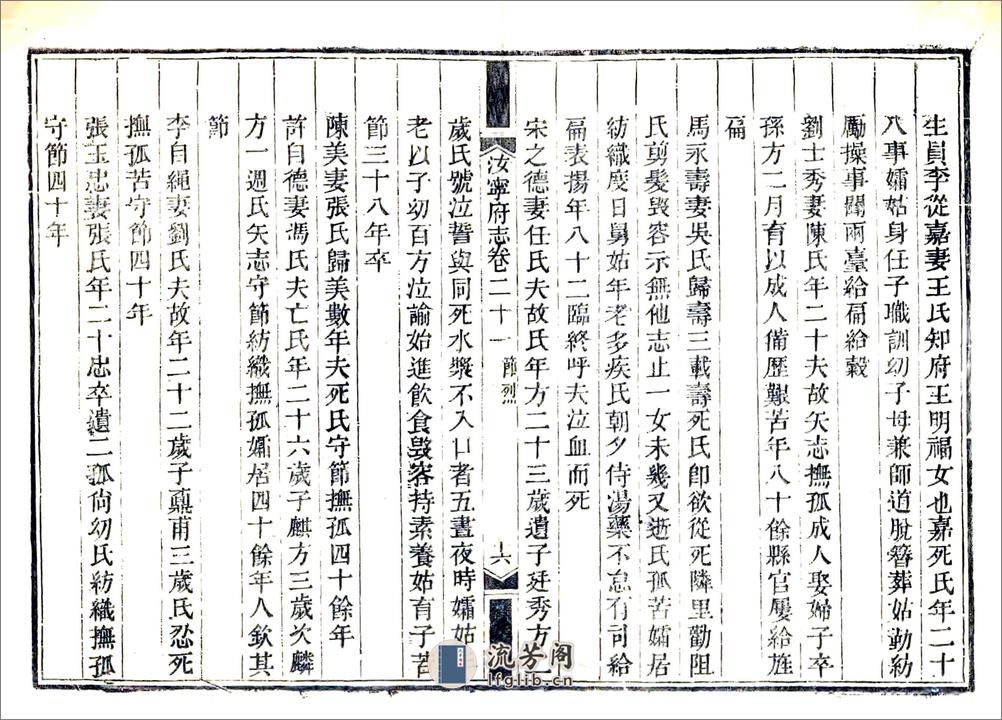 生員李從嘉妻王氏知府王明福女也嘉死氏年二十
八事孀姑身任子職訓幼子母兼師道脫簪葬姑勤紡
勵操事聞兩臺給匾給穀
劉士秀妻陳氏年二十夫故矢志撫孤成人娶婦子卒
孫方二月育以成人備歷艱苦年八十餘縣官屢給旌
匾
馬永壽妻吳氏歸壽三載壽死氏卽欲從死隣里勸阻
氏剪髮毀容示無他志止一女未幾又逝氏孤苦孀居
紡織度日舅姑年老多疾氏朝夕侍湯藥不怠有司給
匾表揚年八十二臨終呼夫泣血而死
宋之德妻任氏夫故氏年方二十三歲遺子廷秀方
汝寧府志卷二十一 節烈 六
歲氏號泣誓與同死水漿不入口者五晝夜時孀姑
老以子幼百方泣諭始進飲食毀容持素養姑育子苦
節三十八年卒
陳美妻張氏歸美數年夫死氏守節撫孤四十餘年
許自德妻馮氏夫亡氏年二十六歲子麒方三歲次麟
方一週氏矢志守節紡織撫孤孀居四十餘年人欽其
節
李自繩妻劉氏夫故年二十二歲子鼐甫三歲氏忍死
撫孤苦守節四十年
張玉忠妻張氏年二十忠卒遺二孤尙幼氏紡織撫孤
守節四十年
流芳阁
lfglib.cn